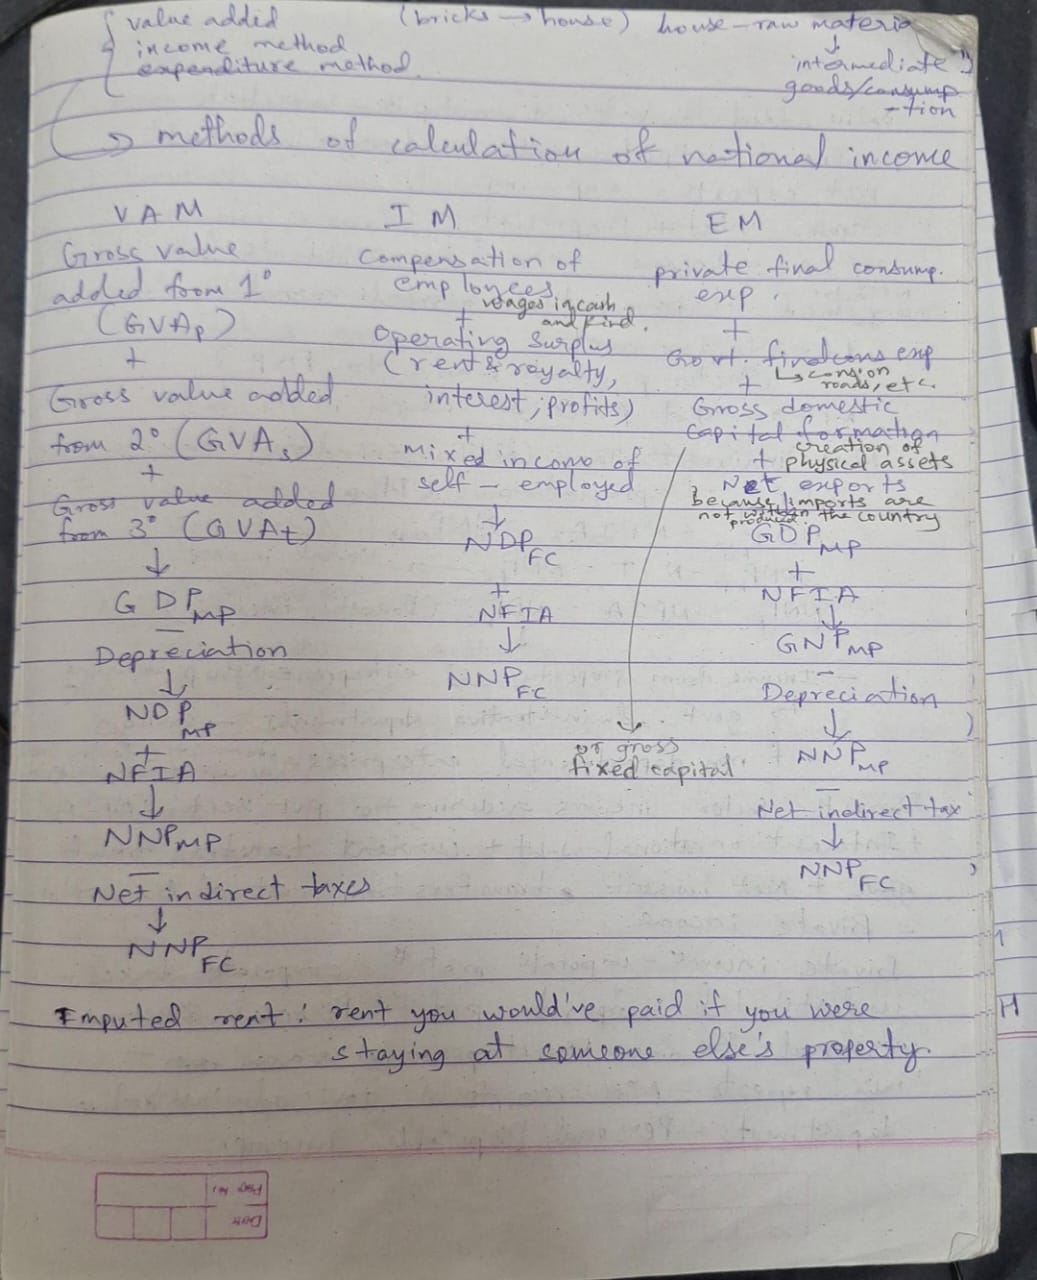 value added (bricks → house) house - raw materia
income method ↓
expenditure method intermediate
goods/consump
-tion
→ methods of calculation of national income
VAM
Gross value
added from 1°
(GVAp)
+
Gross value added
from 2° (GVAs)
+
Gross value added
from 3° (GVAt)
↓
GDP MP
—
Depreciation
↓
NDP MP
+
NFIA
↓
NNP MP
—
Net indirect taxes
↓
NNP FC
IM
Compensation of
employees
+ wages in cash
and kind.
Operating surplus
(rent & royalty,
interest, profits)
+
Mixed income of
self-employed
↓
NDP FC
+
NFIA
↓
NNP FC
EM
private final consump.
exp.
+
Govt. final cons exp
+ ↳ cons. on
roads, etc.
Gross domestic
capital formation
creation of
+ physical assets
Net exports
because imports are
not produced within the country
GDP MP
+
NFIA
↓
GNP MP
—
Depreciation
↓
NNP MP
—
Net indirect tax
↓
NNP FC
or gross
fixed capital
Imputed rent: rent you would've paid if you were
staying at someone else's property.
Page No.
Date